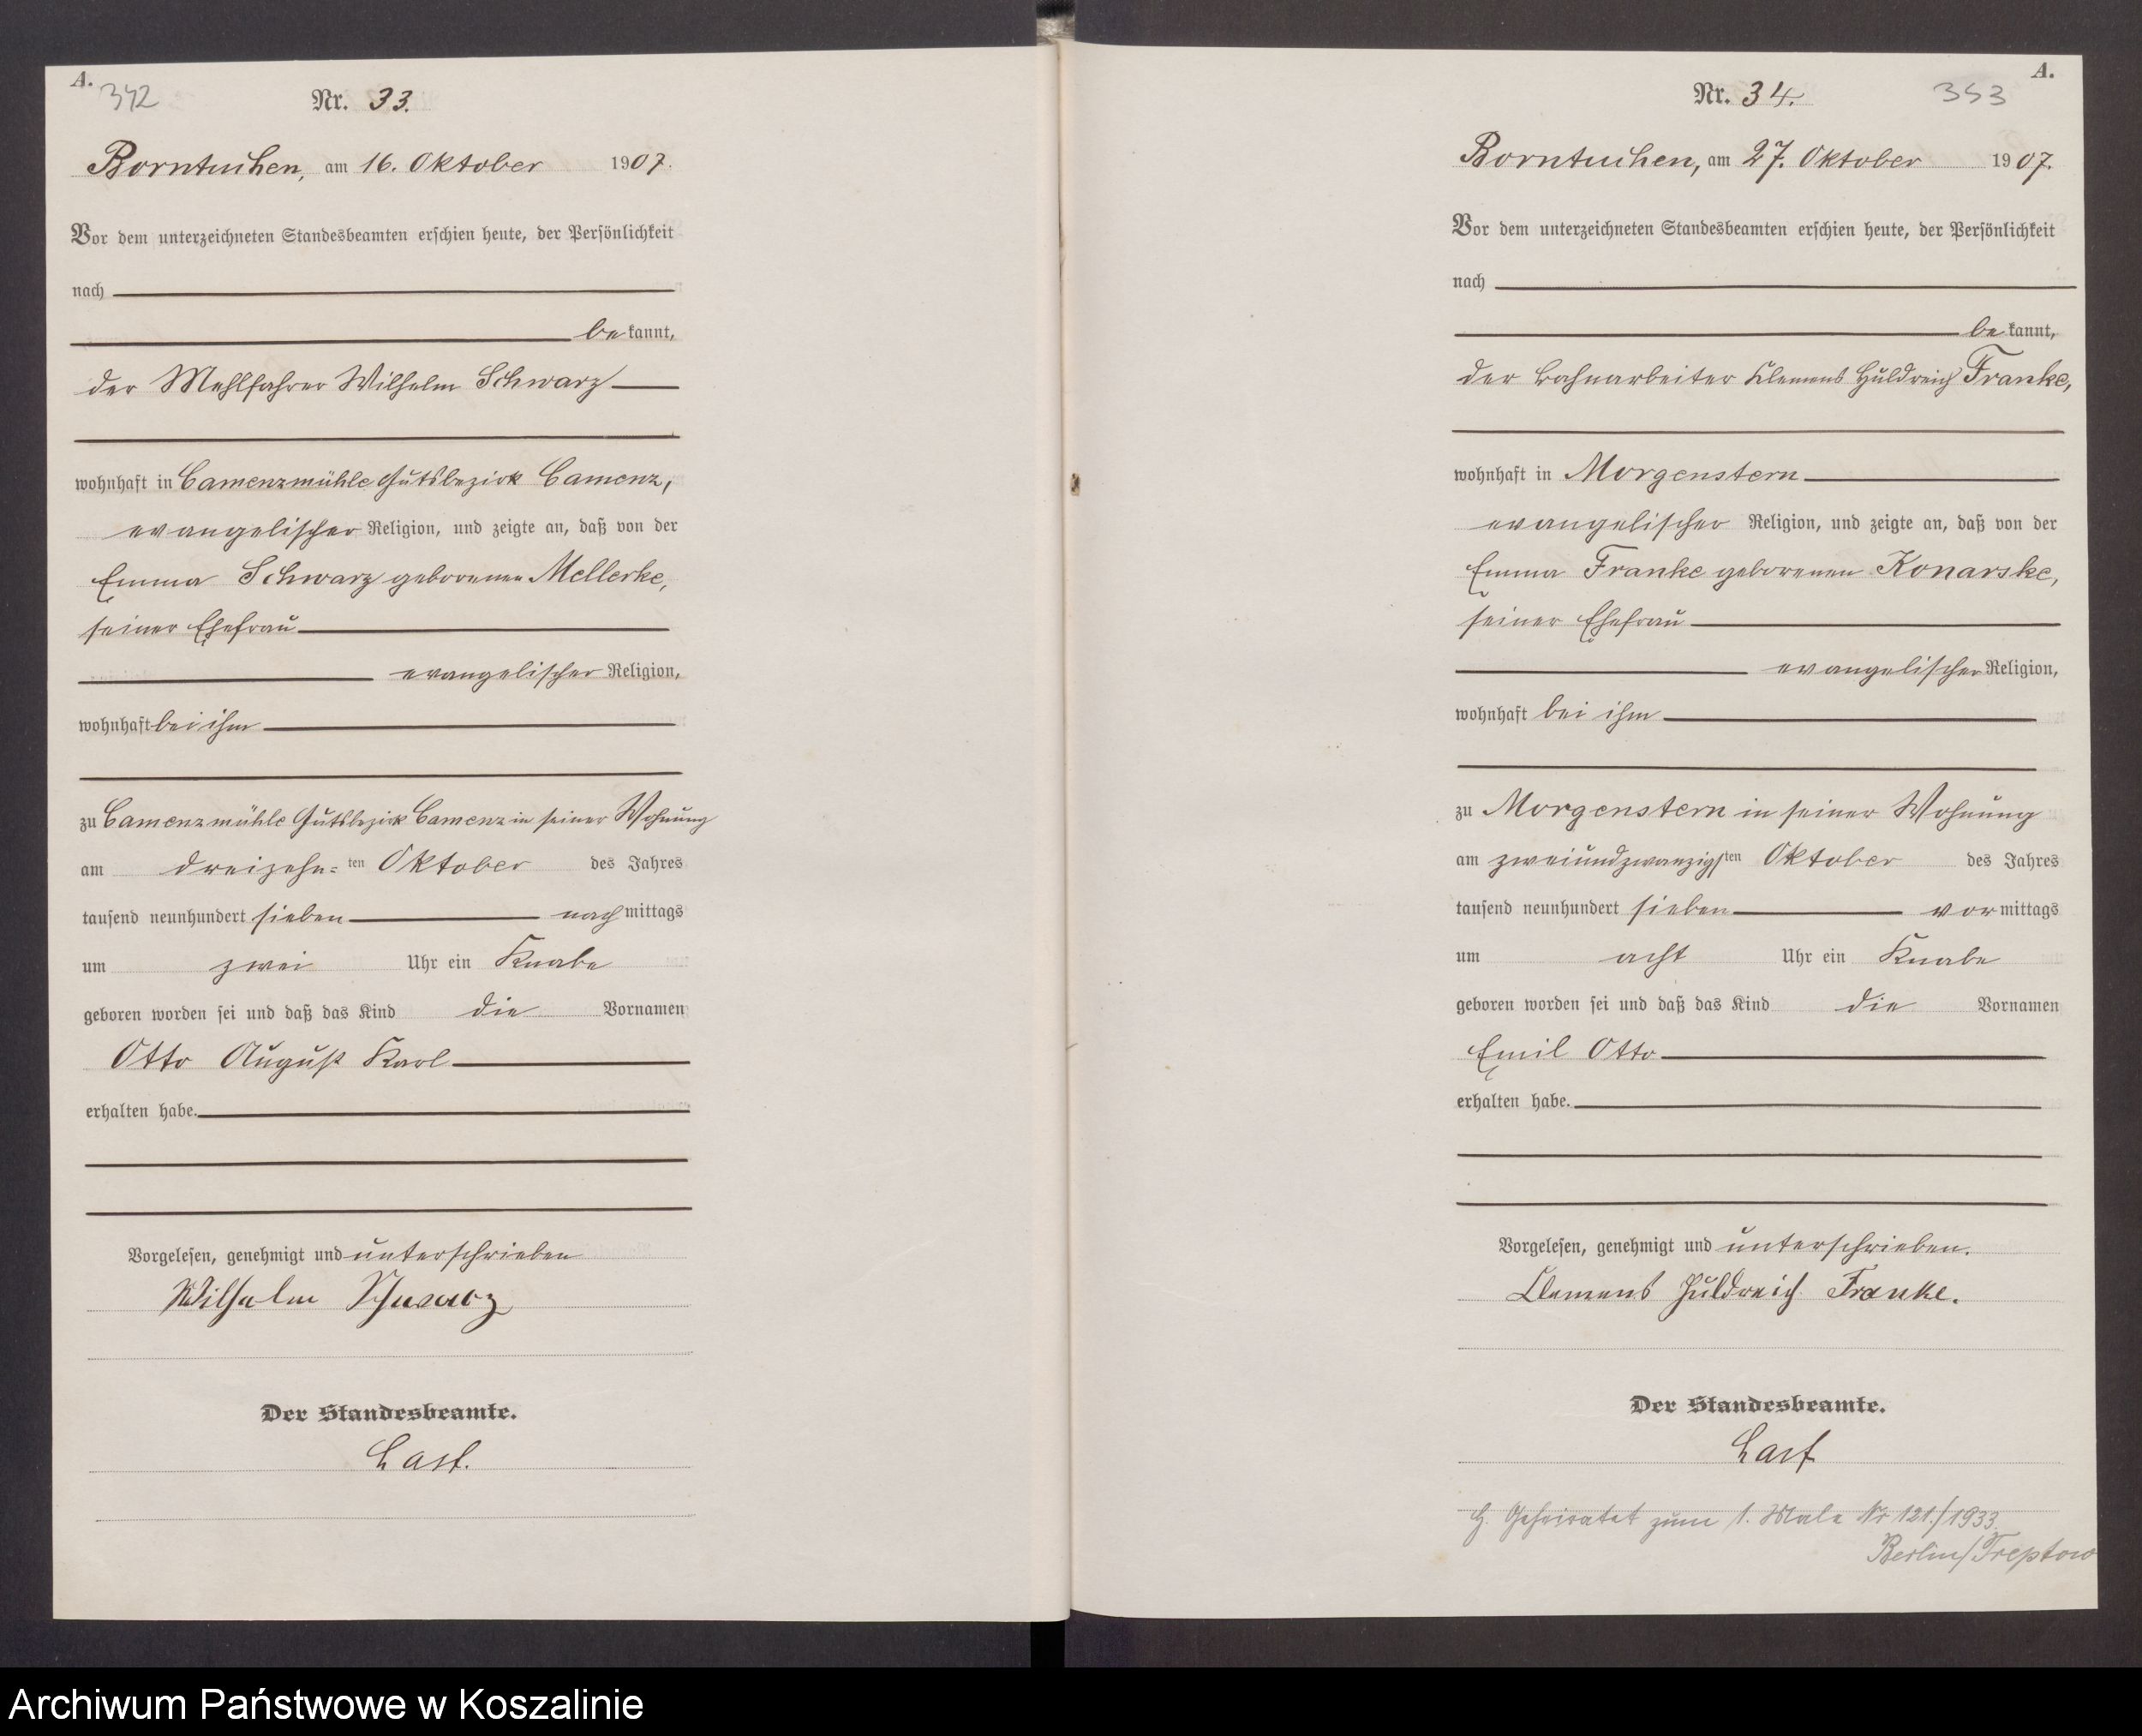 A.
342
Nr. 33.
Borntuchen, am 16. Oktober 1907.
Vor dem unterzeichneten Standesbeamten erschien heute, der Persönlichkeit
nach
bekannt,
der Mehlfahrer Wilhelm Schwarz
wohnhaft in Camenzmühle Gutsbezirk Camenz,
evangelischer Religion, und zeigte an, daß von der
Emma Schwarz geborenen Mellerke,
seiner Ehefrau
evangelischer Religion,
wohnhaft bei ihm
zu Camenzmühle Gutsbezirk Camenz in seiner Wohnung
am dreizehn-ten Oktober des Jahres
tausend neunhundert sieben nachmittags
um zwei Uhr ein Knabe
geboren worden sei und daß das Kind die Vornamen
Otto August Karl
erhalten habe.
Vorgelesen, genehmigt und unterschrieben
Wilhelm Schwarz
Der Standesbeamte.
Last.
A.
353
Nr. 34.
Borntuchen, am 27. Oktober 1907.
Vor dem unterzeichneten Standesbeamten erschien heute, der Persönlichkeit
nach
bekannt,
der Bahnarbeiter Klemens Huldreich Franke,
wohnhaft in Morgenstern
evangelischer Religion, und zeigte an, daß von der
Emma Franke geborenen Konarske,
seiner Ehefrau
evangelischer Religion,
wohnhaft bei ihm
zu Morgenstern in seiner Wohnung
am zweiundzwanzigsten Oktober des Jahres
tausend neunhundert sieben vormittags
um acht Uhr ein Knabe
geboren worden sei und daß das Kind die Vornamen
Emil Otto
erhalten habe.
Vorgelesen, genehmigt und unterschrieben.
Clemens Huldreich Franke.
Der Standesbeamte.
Last
H. Geheiratet zum 1. Male Nr 121/1933.
Berlin/Treptow
Archiwum Państwowe w Koszalinie